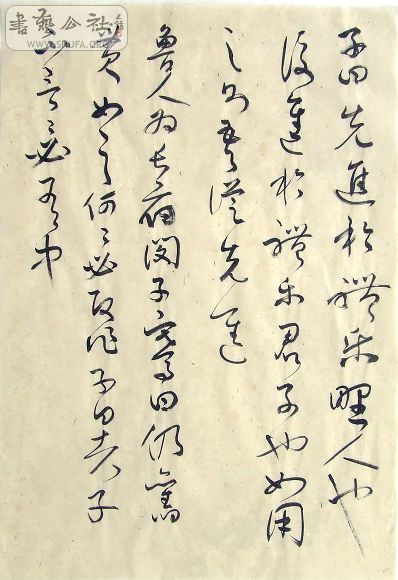 書藝公社
WWW.SHUFA.ORG
子曰先進於禮樂野人也
後進於禮樂君子也如用
之則吾從先進
魯人為長府閔子騫曰仍舊
貫如之何〻必改作子曰夫子
不言〻必有中